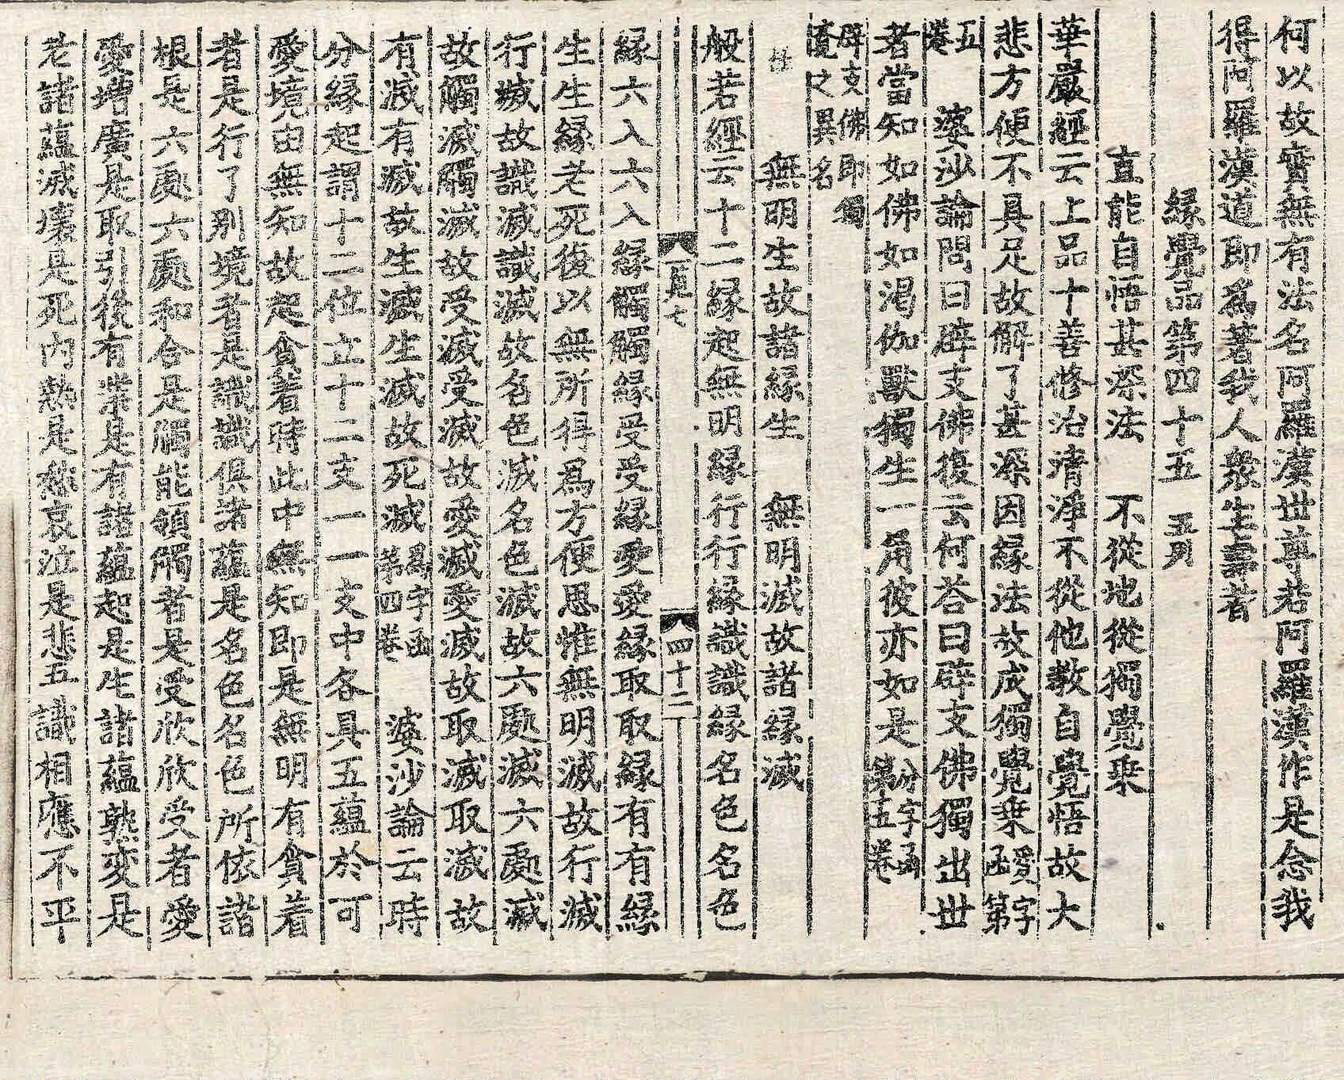 何以故實無有法名阿羅漢世尊若阿羅漢作是念我
得阿羅漢道即爲著我人衆生壽者
緣覺品第四十五 五列
直能自悟甚深法 不從地從獨覺乗
華嚴經云上品十善修治清淨不從他教自覺悟故大
悲方便不具足故解了甚深因緣法故成獨覺乗愛字函第
五卷 婆沙論問曰辟支佛復云何答曰辟支佛獨出世
者當知如佛如渴伽獸獨生一角彼亦如是分字函第五卷
辟支佛即獨覺之異名
無明生故諸緣生 無明滅故諸緣滅
般若經云十二緣起無明緣行行緣識識緣名色名色
四十二
緣六入六入緣觸觸緣受受緣愛愛緣取取緣有有緣
生生緣老死復以無所得爲方便思惟無明滅故行滅
行滅故識滅識滅故名色滅名色滅故六處滅六處滅
故觸滅觸滅故受滅受滅故愛滅愛滅故取滅取滅故
有滅有滅故生滅生滅故死滅字函第四卷 婆沙論云時
分緣起謂十二位立十二支一一支中各具五蘊於可
愛境由無知故起貪著時此中無知即是無明有貪着
者是行了別境者是識識俱諸蘊是名色名色所依諸
根是六處六處和合是觸能領觸者是受欣欣受者愛
愛增廣是取引後有業是有諸蘊起是生諸蘊熟変是
老諸蘊滅壞是死內熱是愁哀泣是悲五識相應不平